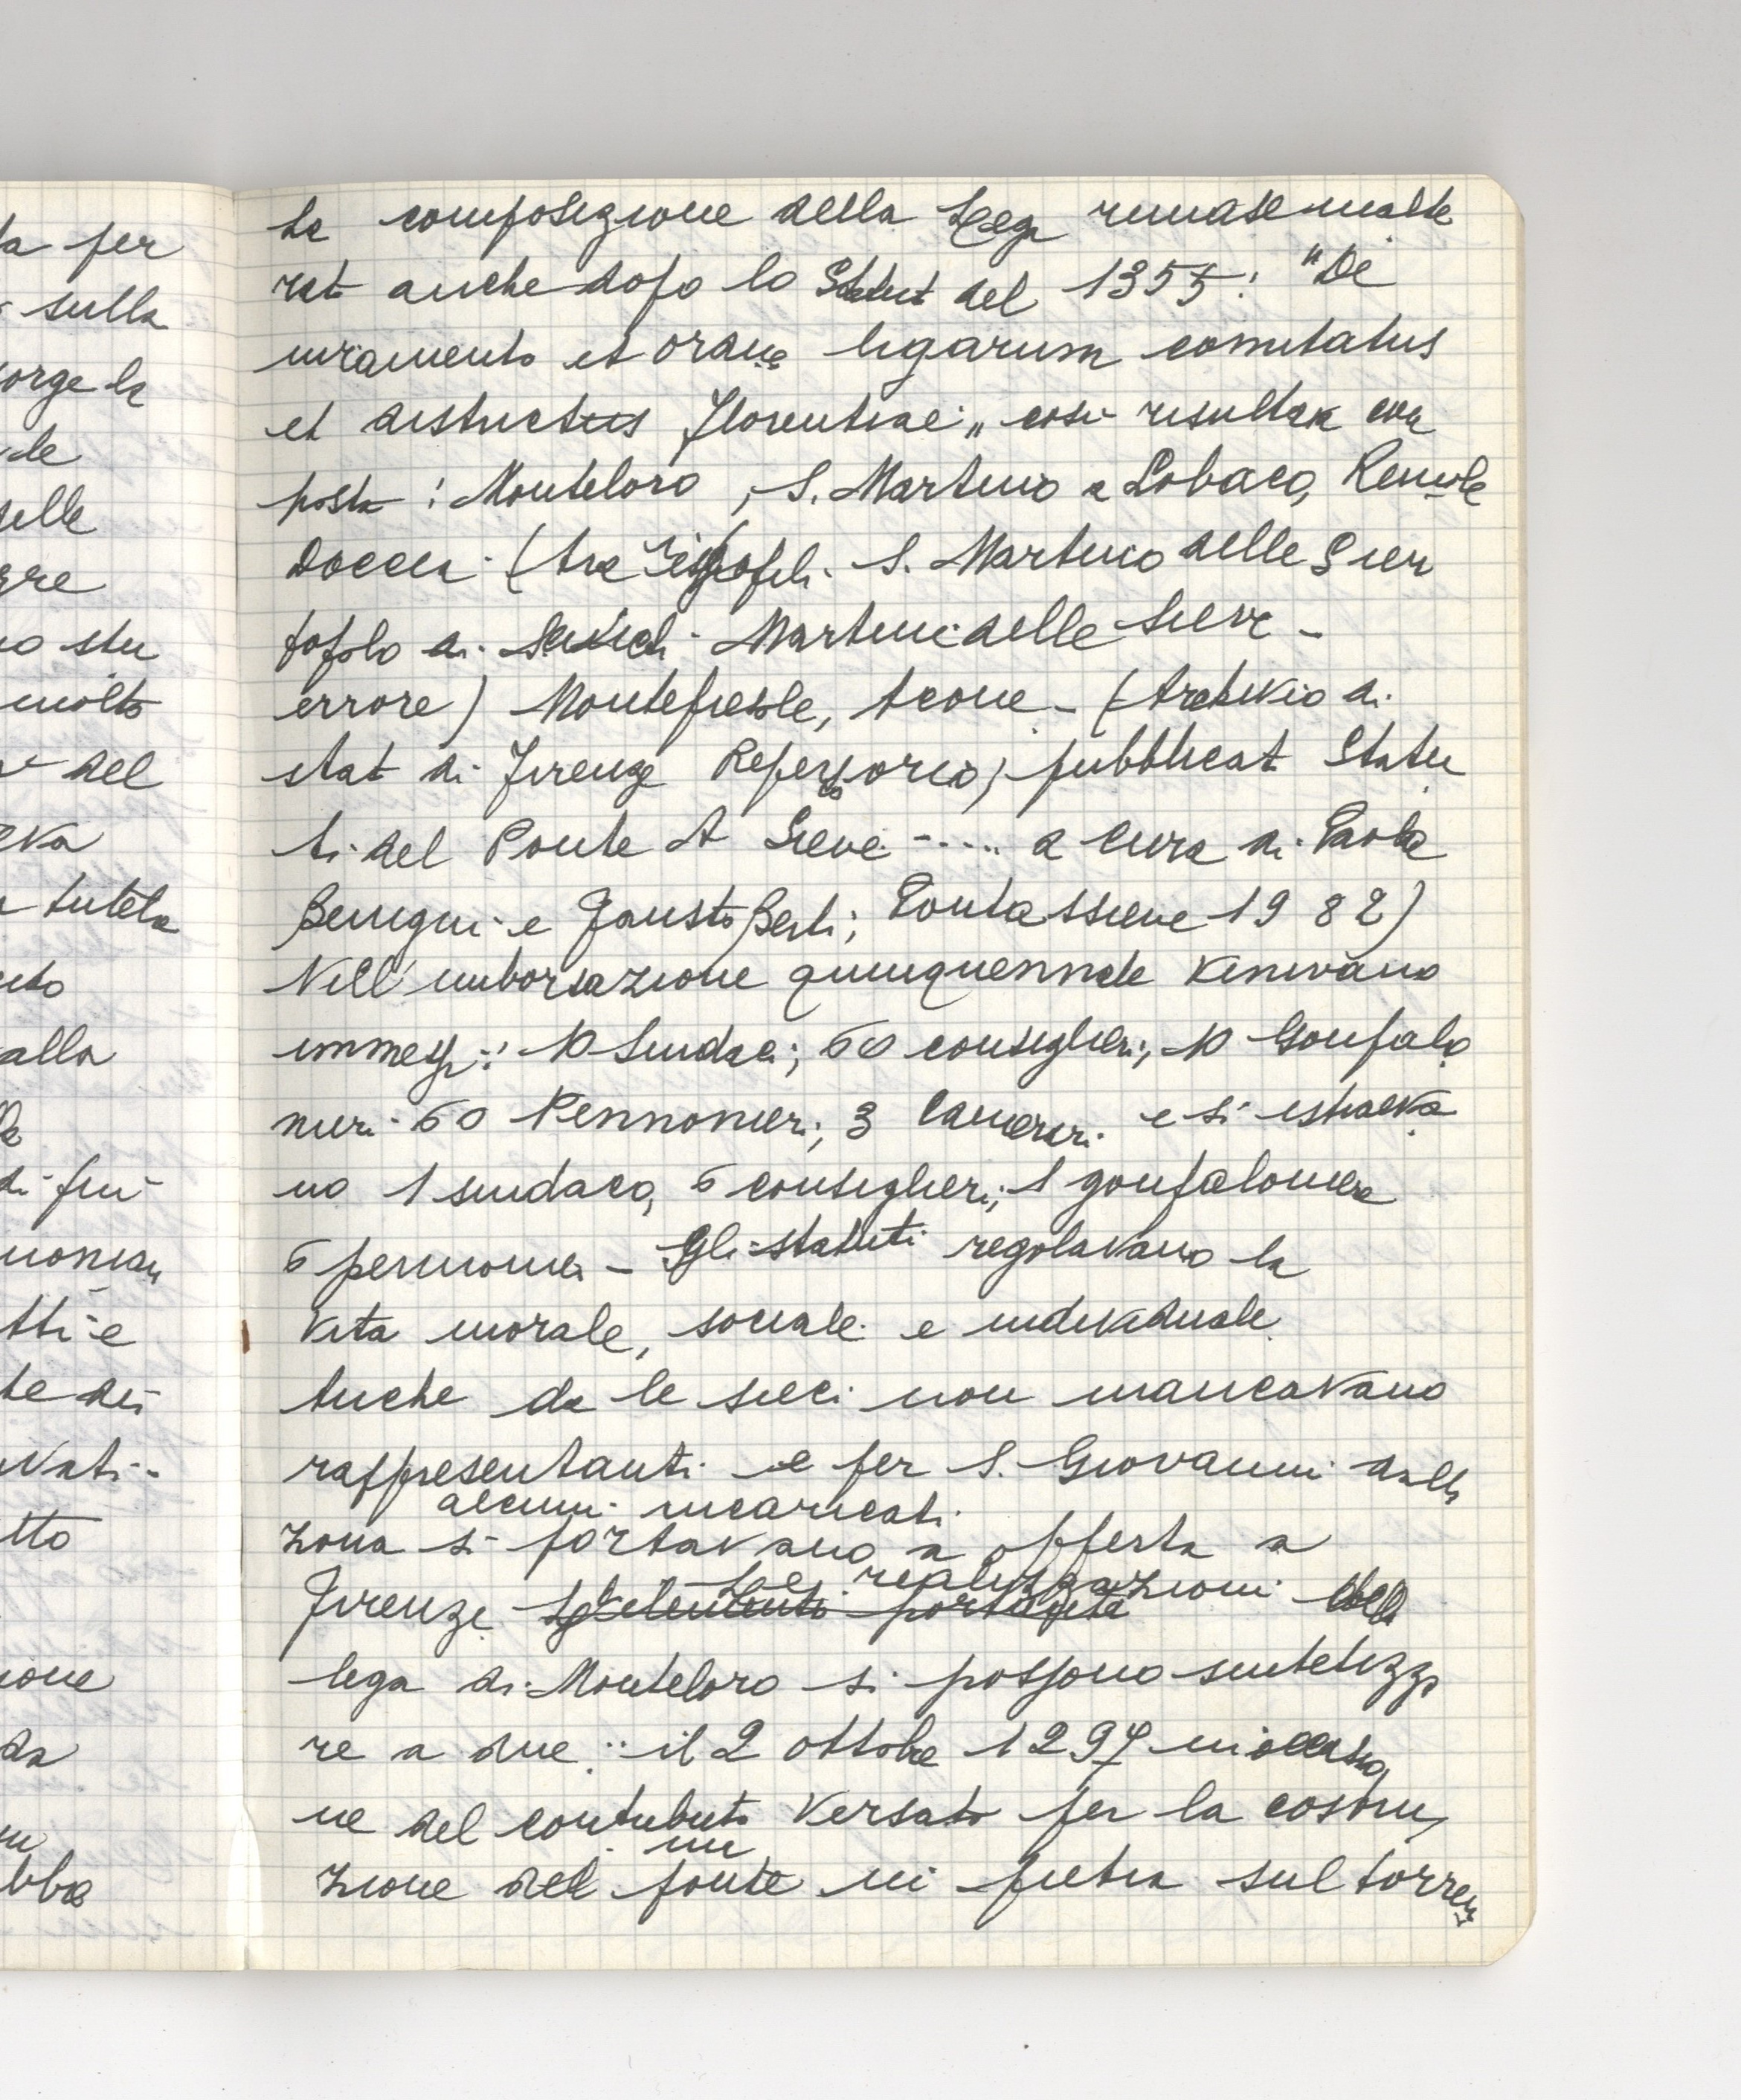 la composizione della Lega rimase inalte
rata anche dopo lo Statut del 1355: "De
iuramento et ordine ligarum comitatus
et districtus Florentiae„ così risultava com
posta: Monteloro, S. Martino a Lobaco, Remole
Doccia. (tra i popoli S. Martino delle Sieci
popolo di Martini delle Sieve -
errore) Montefiesole, Acone - (Archivio di
stat di Firenze Repertorio; pubblicat Statu
ti del Ponte A Sieve ..... a cura di Paola
Benigni e Fausto Berti; Pontassieve 1982)
Nell'imborsazione quinquennale venivano
immessi: 10 Sindaci; 60 consiglieri; 10 Gonfalo
nieri 60 Pennonieri; 3 Camerari e si estraeva
no 1 sindaco, 6 consiglieri; 1 gonfaloniere
6 pennonieri - Gli statuti regolavano la
vita morale, sociale e individuale.
Anche da le sieci non mancavano
rappresentanti e per S. Giovanni dalla
alcuni incaricati
zona si portavano a offerta a
Le realizzazioni della
Firenze
lega di Monteloro si possono sintetizza
re a due: il 2 ottobre 1297 in occasio
ne del contributo versato per la costru
un
zione del ponte in pietra sul torren
ta per
sulla
sorge la
delle
molto
del
tutela
alla
di più